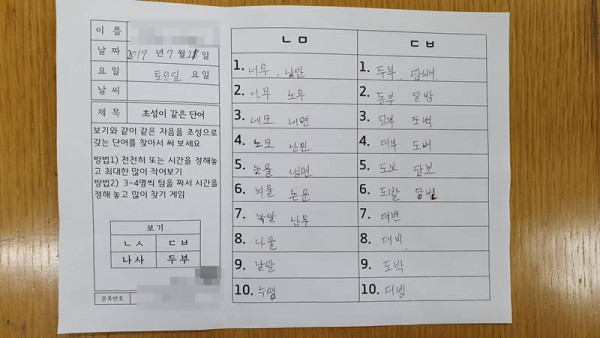 이 름
날 짜 2019 년 9 월 21 일
요 일 토요일 요일
날 씨
제 목 초성이 같은 단어
보기와 같이 같은 자음을 초성으로
갖는 단어를 찾아서 써 보세요
방법1) 천천히 또는 시간을 정해놓
고 최대한 많이 적어보기
방법2) 3~4명씩 팀을 짜서 시간을
정해 놓고 많이 찾기 게임
보 기
ㄴ ㅅ ㄷ ㅂ
나사 두부
분류번호
ㄴ ㅁ
1. 너무 낭만
2. 나무 노무
3. 네모 내면
4. 노모 난민
5. 눈물 냉면
6. 뇌물 논문
7. 녹말 난무
8. 나물
9. 낱말
10. 누명
ㄷ ㅂ
1. 두부 담배
2. 동부 달밤
3. 담부 도벽
4. 더부 도버
5. 도보 담보
6. 되팔 당번
7. 대변
8. 대비
9. 도박
10. 더빙